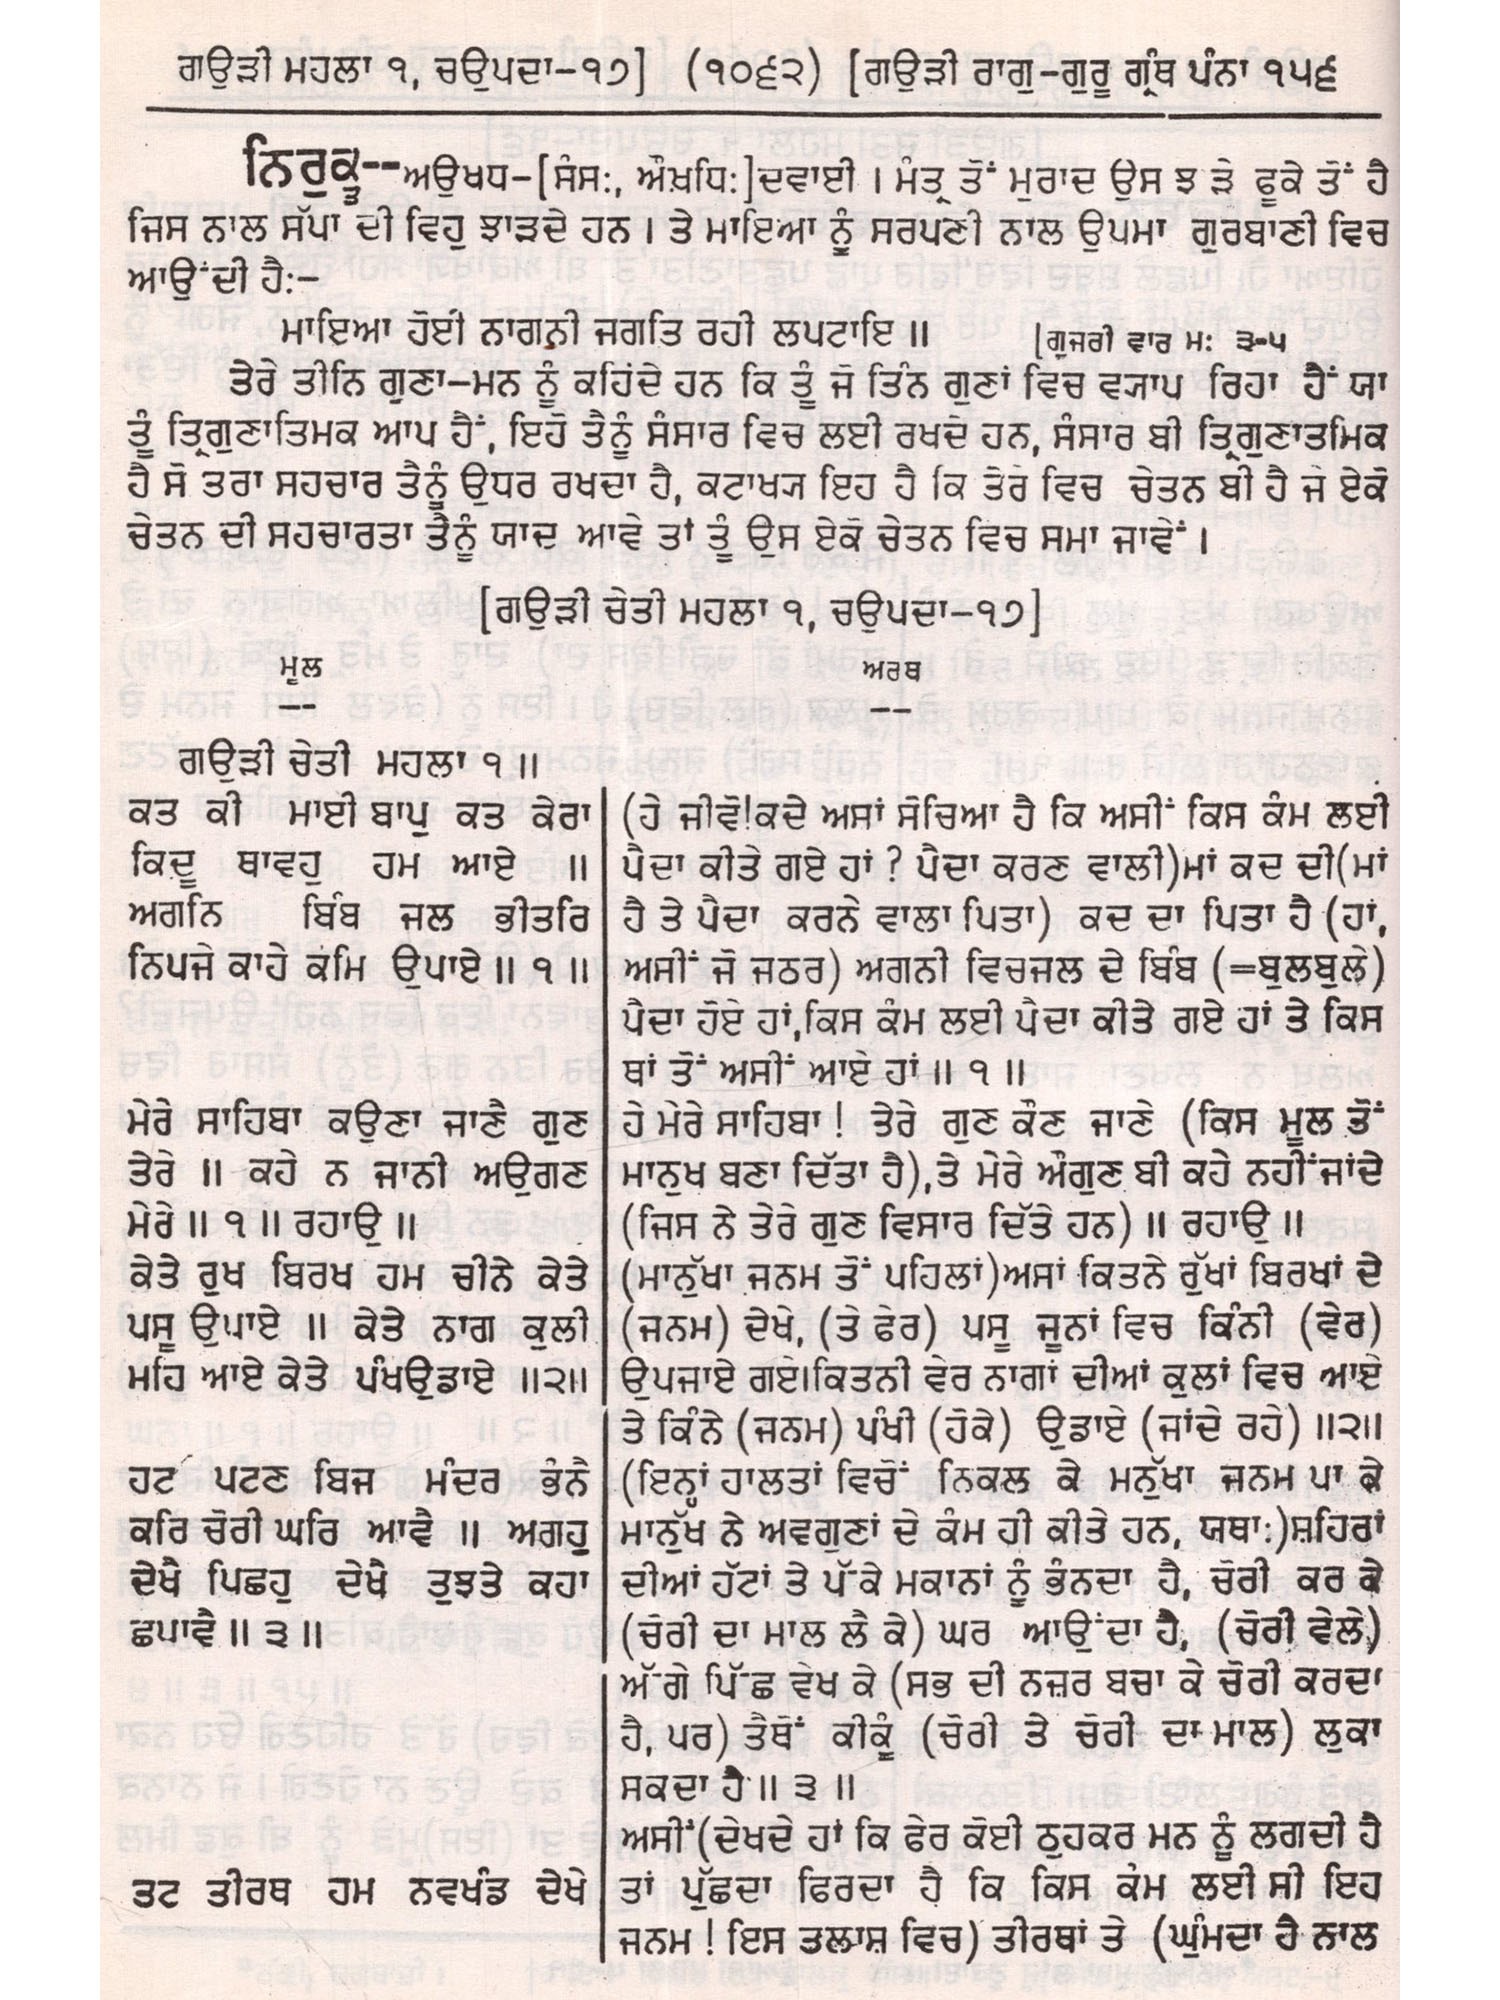 ਗਉੜੀ ਮਹਲਾ ੧, ਚਉਪਦਾ-੧੭] (੧੦੬੨) [ਗਉੜੀ ਰਾਗੁ-ਗੁਰੂ ਗ੍ਰੰਥ ਪੰਨਾ ੧੫੬
ਨਿਰੁਕ੍ਤ--ਅਉਖਧ-[ਸੰਸ:, ਔਖ਼ਧਿ:]ਦਵਾਈ । ਮੰਤ੍ਰ ਤੋਂ ਮੁਰਾਦ ਉਸ ਝ ੜੇ ਫੂਕੇ ਤੋਂ ਹੈ
ਜਿਸ ਨਾਲ ਸੱਪਾਂ ਦੀ ਵਿਹੁ ਝਾੜਦੇ ਹਨ । ਤੇ ਮਾਇਆ ਨੂੰ ਸਰਪਣੀ ਨਾਲ ਉਪਮਾ ਗੁਰਬਾਣੀ ਵਿਚ
ਆਉਂਦੀ ਹੈ:-
ਮਾਇਆ ਹੋਈ ਨਾਗਨੀ ਜਗਤਿ ਰਹੀ ਲਪਟਾਇ ॥ [ਗੁਜਰੀ ਵਾਰ ਮ: ੩-੫
ਤੇਰੇ ਤੀਨਿ ਗੁਣਾ-ਮਨ ਨੂੰ ਕਹਿੰਦੇ ਹਨ ਕਿ ਤੂੰ ਜੋ ਤਿੰਨ ਗੁਣਾਂ ਵਿਚ ਵ੍ਯਾਪ ਰਿਹਾ ਹੈਂ ਯਾ
ਤੂੰ ਤ੍ਰਿਗੁਣਾਤਿਮਕ ਆਪ ਹੈਂ, ਇਹੋ ਤੈਨੂੰ ਸੰਸਾਰ ਵਿਚ ਲਈ ਰਖਦੇ ਹਨ, ਸੰਸਾਰ ਬੀ ਤ੍ਰਿਗੁਣਾਤਮਿਕ
ਹੈ ਸੋ ਤਰਾ ਸਹਚਾਰ ਤੈਨੂੰ ਉਧਰ ਰਖਦਾ ਹੈ, ਕਟਾਖ੍ਯ ਇਹ ਹੈ ਕਿ ਤੇਰੇ ਵਿਚ ਚੇਤਨ ਬੀ ਹੈ ਜੇ ਏਕੋ
ਚੇਤਨ ਦੀ ਸਹਚਾਰਤਾ ਤੈਨੂੰ ਯਾਦ ਆਵੇ ਤਾਂ ਤੂੰ ਉਸ ਏਕੋ ਚੇਤਨ ਵਿਚ ਸਮਾ ਜਾਵੇਂ ।
[ਗਉੜੀ ਚੇਤੀ ਮਹਲਾ ੧, ਚਉਪਦਾ-੧੭]
ਮੂਲ
ਗਉੜੀ ਚੇਤੀ ਮਹਲਾ ੧ ॥
ਕਤ ਕੀ ਮਾਈ ਬਾਪੁ ਕਤ ਕੇਰਾ
ਕਿਦੂ ਥਾਵਹੁ ਹਮ ਆਏ ॥
ਅਗਨਿ ਬਿੰਬ ਜਲ ਭੀਤਰਿ
ਨਿਪਜੇ ਕਾਹੇ ਕੰਮਿ ਉਪਾਏ ॥ ੧ ॥
ਮੇਰੇ ਸਾਹਿਬਾ ਕਉਣਾ ਜਾਣੈ ਗੁਣ
ਤੇਰੇ ॥ ਕਹੇ ਨ ਜਾਨੀ ਅਉਗਣ
ਮੇਰੇ ॥ ੧ ॥ ਰਹਾਉ ॥
ਕੇਤੇ ਰੁਖ ਬਿਰਖ ਹਮ ਚੀਨੇ ਕੇਤੇ
ਪਸੂ ਉਪਾਏ ॥ ਕੇਤੇ ਨਾਗ ਕੁਲੀ
ਮਹਿ ਆਏ ਕੇਤੇ ਪੰਖਉਡਾਏ ॥੨॥
ਹਟ ਪਟਣ ਬਿਜ ਮੰਦਰ ਭੰਨੈ
ਕਰਿ ਚੋਰੀ ਘਰਿ ਆਵੈ ॥ ਅਗਹੁ
ਦੇਖੈ ਪਿਛਹੁ ਦੇਖੈ ਤੁਝਤੇ ਕਹਾ
ਛਪਾਵੈ ॥ ੩ ॥
ਤਟ ਤੀਰਥ ਹਮ ਨਵਖੰਡ ਦੇਖੇ
ਅਰਥ
(ਹੇ ਜੀਵੋ!ਕਦੇ ਅਸਾਂ ਸੋਚਿਆ ਹੈ ਕਿ ਅਸੀਂ ਕਿਸ ਕੰਮ ਲਈ
ਪੈਦਾ ਕੀਤੇ ਗਏ ਹਾਂ ? ਪੈਦਾ ਕਰਣ ਵਾਲੀ)ਮਾਂ ਕਦ ਦੀ(ਮਾਂ
ਹੈ ਤੇ ਪੈਦਾ ਕਰਨੇ ਵਾਲਾ ਪਿਤਾ) ਕਦ ਦਾ ਪਿਤਾ ਹੈ (ਹਾਂ,
ਅਸੀਂ ਜੋ ਜਠਰ) ਅਗਨੀ ਵਿਚਜਲ ਦੇ ਬਿੰਬ (=ਬੁਲਬੁਲੇ)
ਪੈਦਾ ਹੋਏ ਹਾਂ,ਕਿਸ ਕੰਮ ਲਈ ਪੈਦਾ ਕੀਤੇ ਗਏ ਹਾਂ ਤੇ ਕਿਸ
ਥਾਂ ਤੋਂ ਅਸੀਂ ਆਏ ਹਾਂ ॥ ੧ ॥
ਹੇ ਮੇਰੇ ਸਾਹਿਬਾ ! ਤੇਰੇ ਗੁਣ ਕੌਣ ਜਾਣੇ (ਕਿਸ ਮੂਲ ਤੋਂ
ਮਾਨੁਖ ਬਣਾ ਦਿੱਤਾ ਹੈ),ਤੇ ਮੇਰੇ ਔਗੁਣ ਬੀ ਕਹੇ ਨਹੀਂਜਾਂਦੇ
(ਜਿਸ ਨੇ ਤੇਰੇ ਗੁਣ ਵਿਸਾਰ ਦਿੱਤੇ ਹਨ) ॥ ਰਹਾਉ ॥
(ਮਾਨੁੱਖਾ ਜਨਮ ਤੋਂ ਪਹਿਲਾਂ)ਅਸਾਂ ਕਿਤਨੇ ਰੁੱਖਾਂ ਬਿਰਖਾਂ ਦੇ
(ਜਨਮ) ਦੇਖੇ, (ਤੇ ਫੇਰ) ਪਸੂ ਜੂਨਾਂ ਵਿਚ ਕਿੰਨੀ (ਵੇਰ)
ਉਪਜਾਏ ਗਏ।ਕਿਤਨੀ ਵੇਰ ਨਾਗਾਂ ਦੀਆਂ ਕੁਲਾਂ ਵਿਚ ਆਏ
ਤੇ ਕਿੰਨੇ (ਜਨਮ) ਪੰਖੀ (ਹੋਕੇ) ਉਡਾਏ (ਜਾਂਦੇ ਰਹੇ) ॥੨॥
(ਇਨ੍ਹਾਂ ਹਾਲਤਾਂ ਵਿਚੋਂ ਨਿਕਲ ਕੇ ਮਨੁੱਖਾ ਜਨਮ ਪਾ ਕੇ
ਮਾਨੁੱਖ ਨੇ ਅਵਗੁਣਾਂ ਦੇ ਕੰਮ ਹੀ ਕੀਤੇ ਹਨ, ਯਥਾ:)ਸ਼ਹਿਰਾਂ
ਦੀਆਂ ਹੱਟਾਂ ਤੇ ਪੱਕੇ ਮਕਾਨਾਂ ਨੂੰ ਭੰਨਦਾ ਹੈ, ਚੋਰੀ ਕਰ ਕੇ
(ਚੋਰੀ ਦਾ ਮਾਲ ਲੈ ਕੇ) ਘਰ ਆਉਂਦਾ ਹੈ, (ਚੋਰੀ ਵੇਲੇ)
ਅੱਗੇ ਪਿੱਛ ਵੇਖ ਕੇ (ਸਭ ਦੀ ਨਜ਼ਰ ਬਚਾ ਕੇ ਚੋਰੀ ਕਰਦਾ
ਹੈ, ਪਰ) ਤੈਥੋਂ ਕੀਕੂੰ (ਚੋਰੀ ਤੇ ਚੋਰੀ ਦਾ ਮਾਲ) ਲੁਕਾ
ਸਕਦਾ ਹੈ ॥ ੩ ॥
ਅਸੀਂ(ਦੇਖਦੇ ਹਾਂ ਕਿ ਫੇਰ ਕੋਈ ਠੁਹਕਰ ਮਨ ਨੂੰ ਲਗਦੀ ਹੈ
ਤਾਂ ਪੁੱਛਦਾ ਫਿਰਦਾ ਹੈ ਕਿ ਕਿਸ ਕੰਮ ਲਈ ਸੀ ਇਹ
ਜਨਮ ! ਇਸ ਤਲਾਸ਼ ਵਿਚ) ਤੀਰਥਾਂ ਤੇ (ਘੁੰਮਦਾ ਹੈ ਨਾਲ